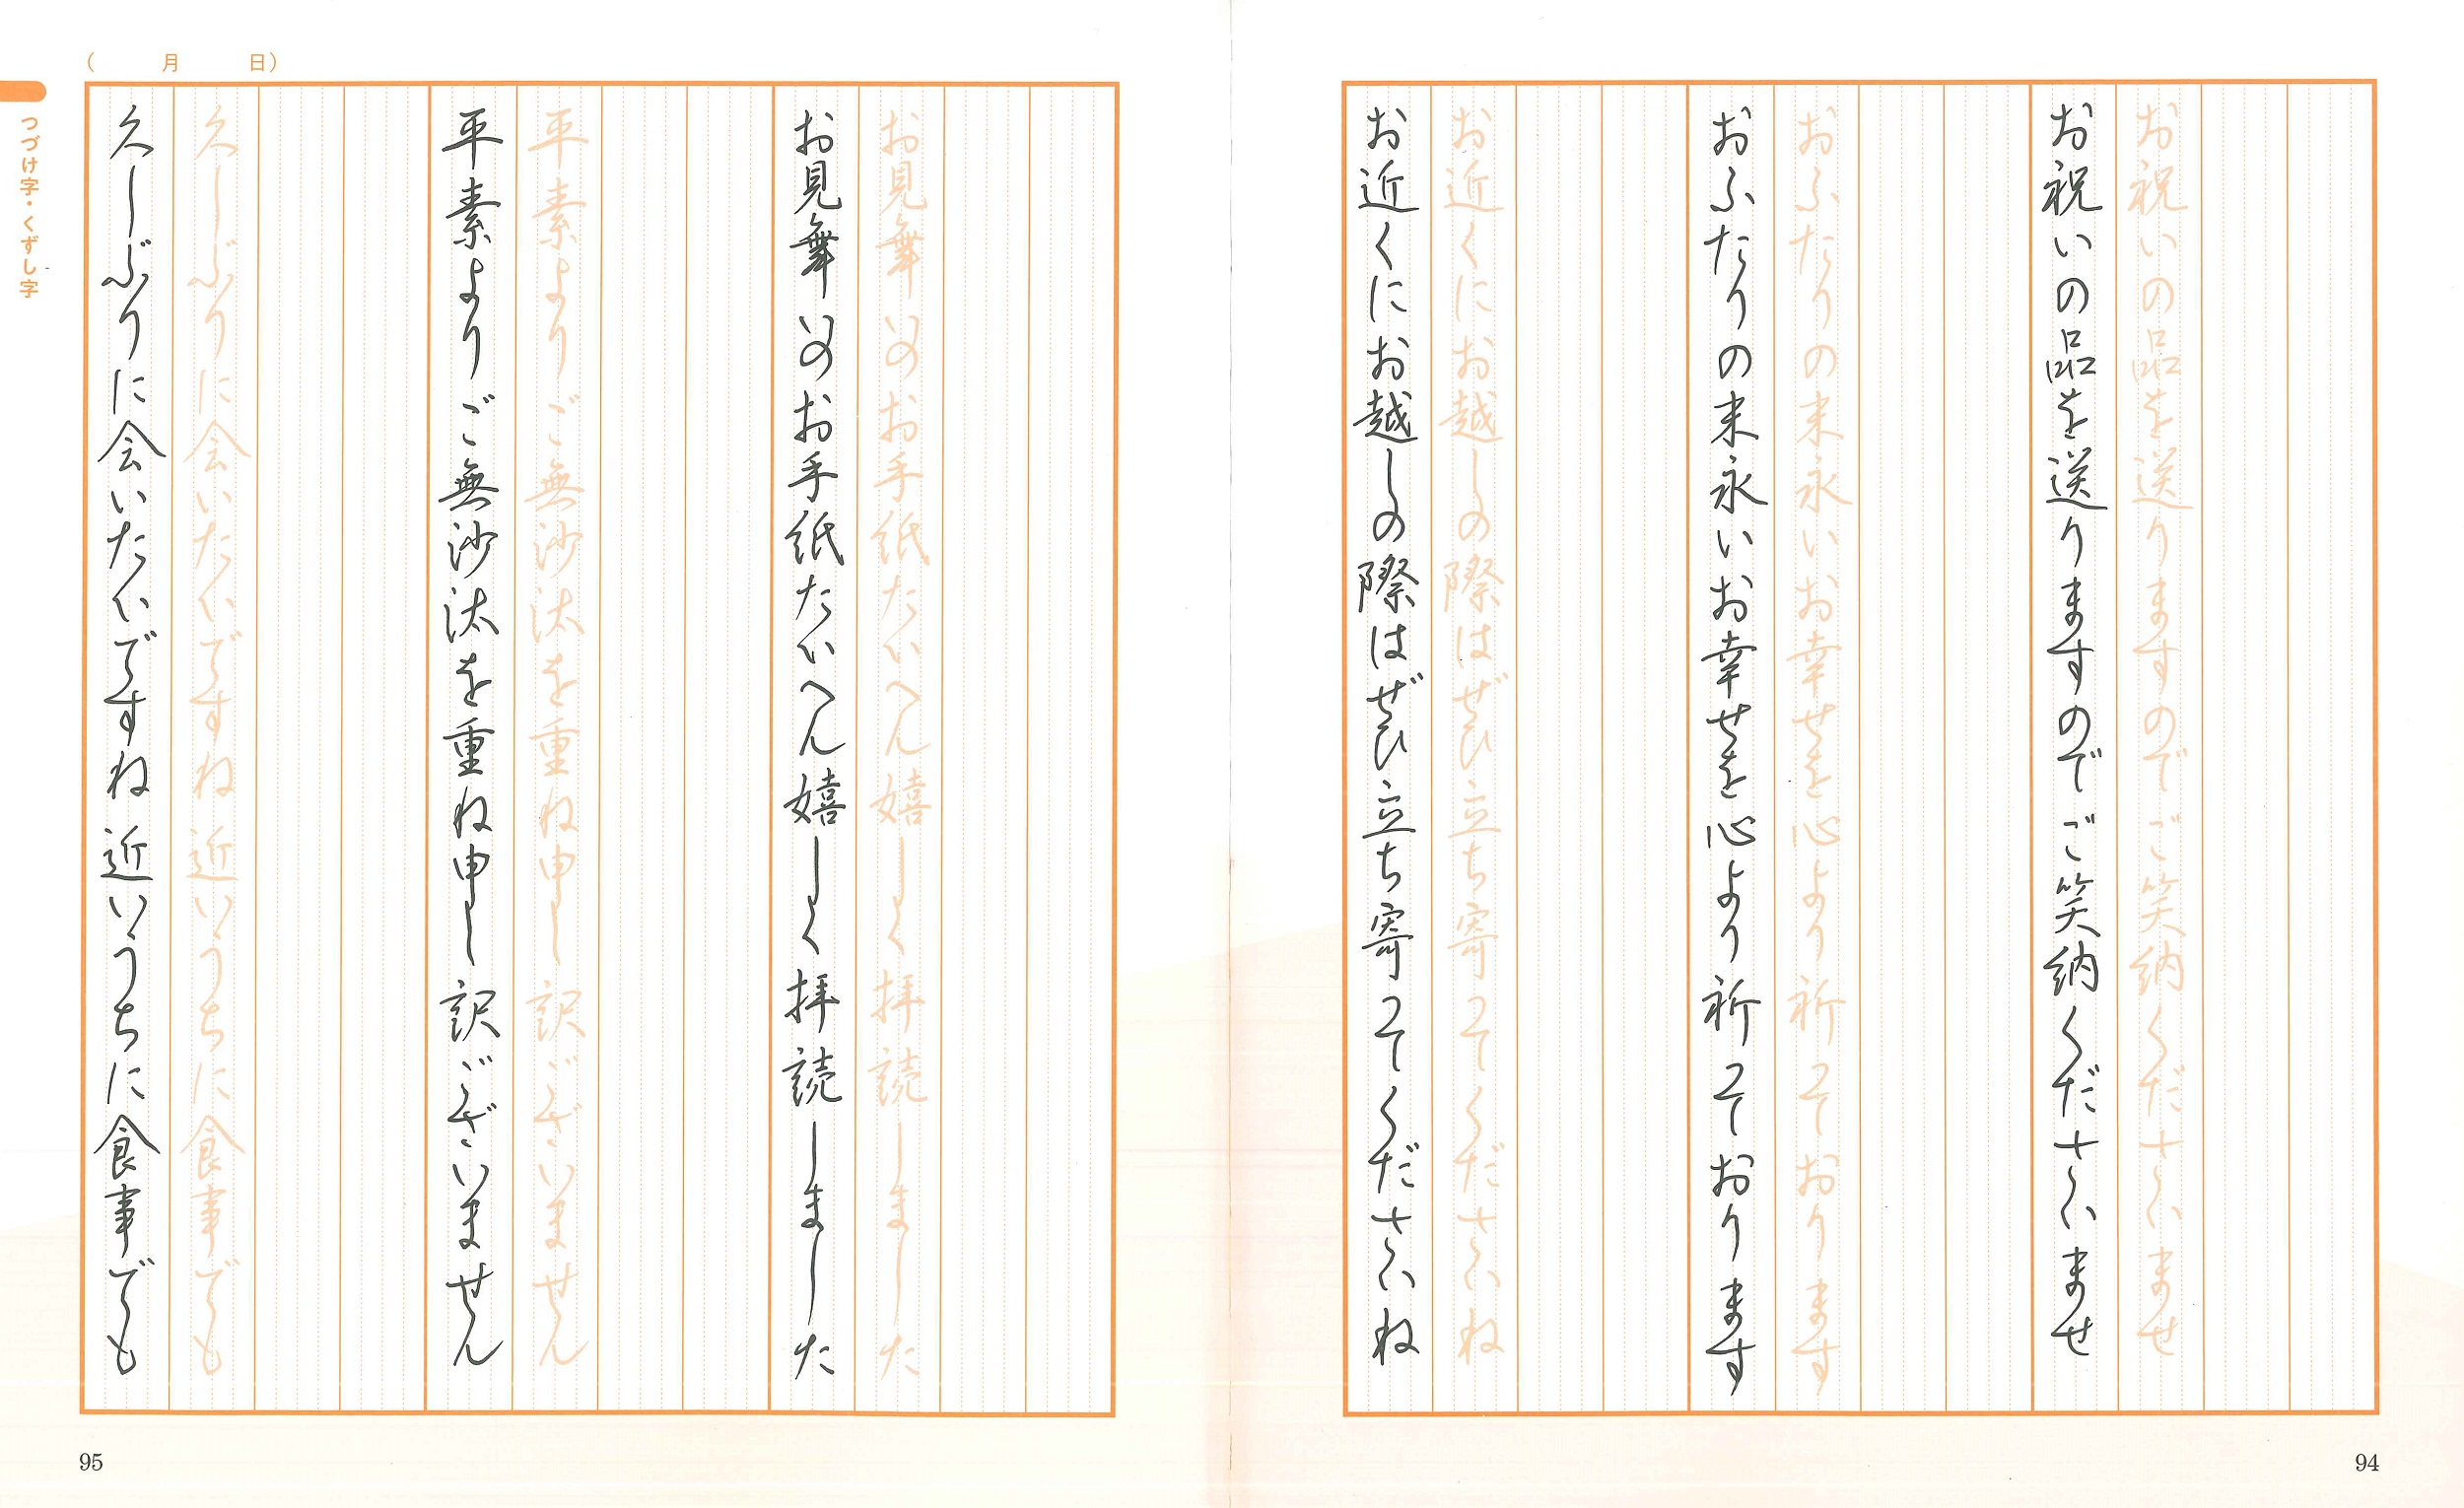 お祝いの品を送りますのでご笑納くださいませ
お祝いの品を送りますのでご笑納くださいませ
おふたりの末永いお幸せを心より祈っております
おふたりの末永いお幸せを心より祈っております
お近くにお越しの際はぜひ立ち寄ってくださいね
お近くにお越しの際はぜひ立ち寄ってくださいね
94
（　月　日）
お見舞いのお手紙たいへん嬉しく拝読しました
お見舞いのお手紙たいへん嬉しく拝読しました
平素よりご無沙汰を重ね申し訳ございません
平素よりご無沙汰を重ね申し訳ございません
久しぶりに会いたいですね 近いうちに食事でも
久しぶりに会いたいですね 近いうちに食事でも
つづけ字・くずし字
95